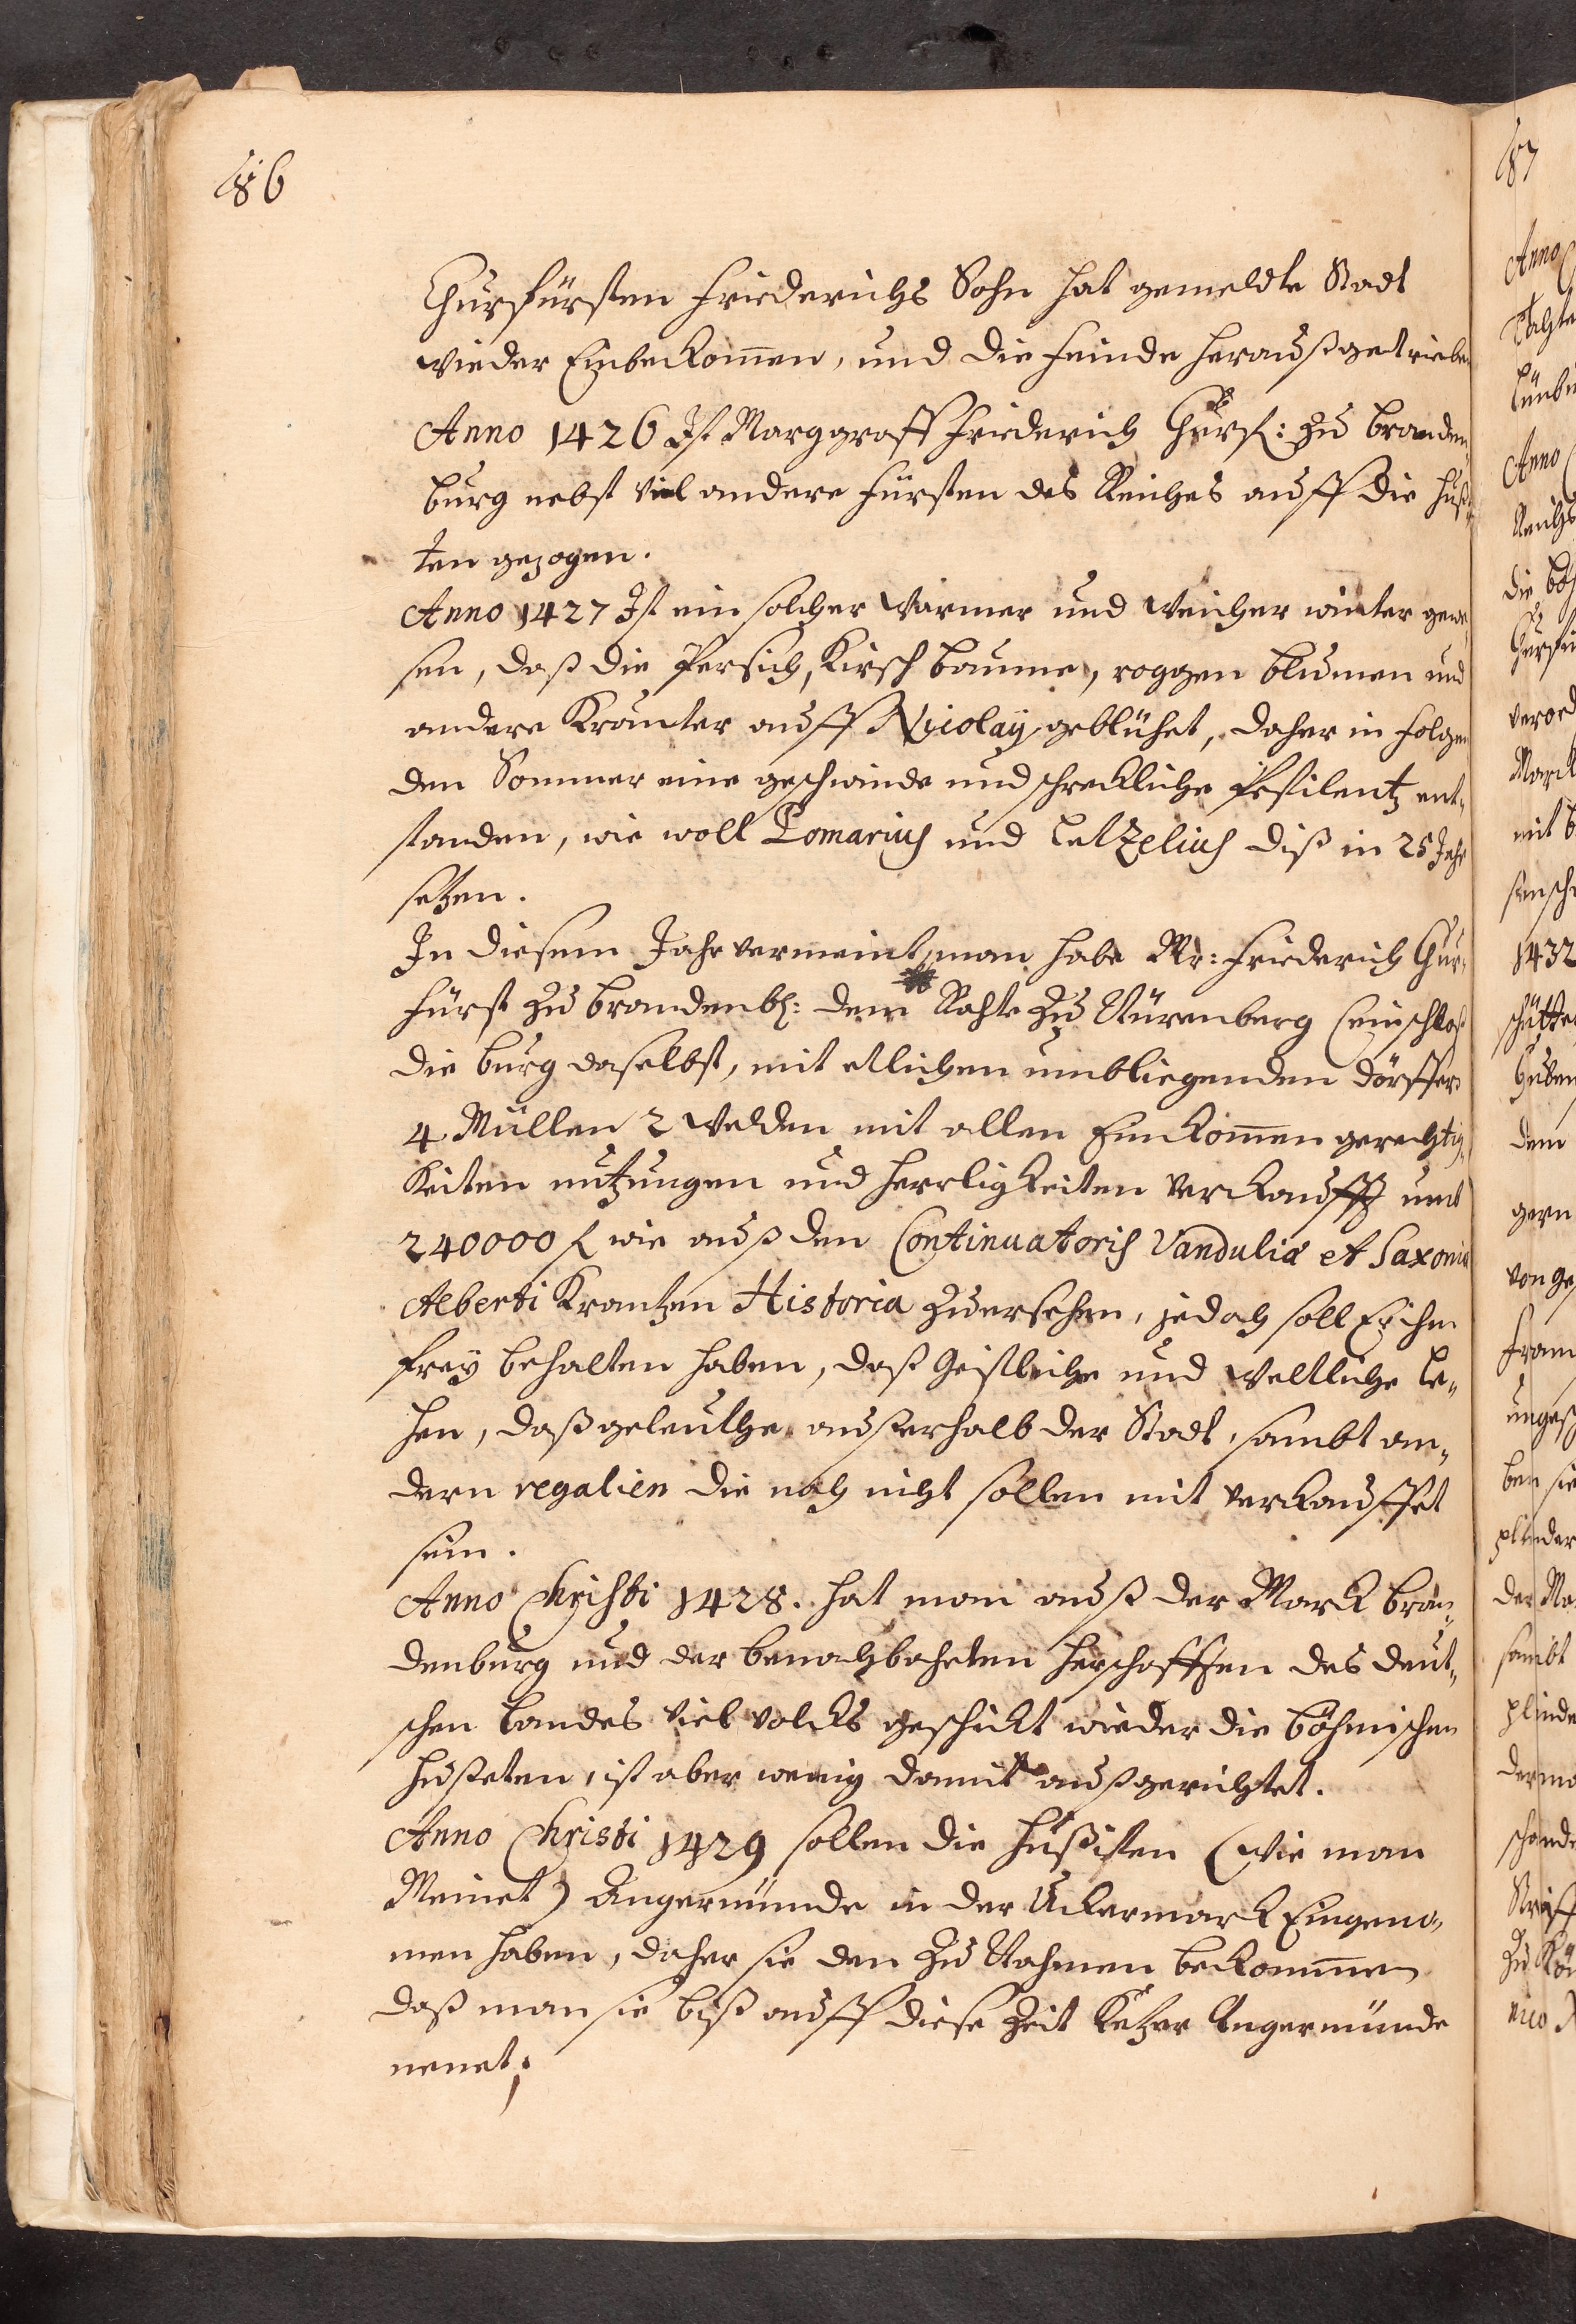 186
Churfürsten Friederichs Sohn hat gemeldte Stadt
wieder Einbekom̄en, und die Feinde heraußgetrieben
Anno 1426 Ist Marggraff Friederich Churf: zu Branden¬
burg nebst viel andere Fürsten des Reiches auff die Huß¬
ten gezogen.
Anno 1427 Ist ein solcher warmer und weicher winter gewe¬
sen, daß die Persich, Kirsch baume, roggen blumen und
andere Kräuter auff Nicolaÿ geblühet, daher in folgen
den Sommer eine geschwinde und schreckliche Pestilentz ent¬
standen, wie woll Pomarius und Letzelius diß in 25 Jahr
setzen.
In diesem Jahr vermeint man habe Mr: Friederich Chur¬
fürst zu Brandenb: dem Rahte zu Nürenberg sein schloß
die burg daselbst, mit etlichen umbliegenden dörffern
4 Müllen 2 welden mit allen Einkom̄en gerechtig¬
keiten nutzungen und herrligkeiten verkaufft umb
240000 f wie auß den Continuatoris Vanduliæ et Saxoniæ
Alberti Krantzen Historia zuersehen, jedoch soll Er ihm
freÿ behalten haben, daß Geistliche und weltliche Le¬
hen, daß geleuthe außerhalb der Stadt, sambt an¬
dern regalien die noch nicht sollen mit verkauffet
sein.
Anno Christi 1428. hat man auß der Marck bran¬
denburg und der benachbahrten herschafften des deut¬
schen Landes viel volcks geschickt wieder die böhmischen
Husseten, ist aber wenig damit außgerichtet.
Anno Christi 1429 sollen die Hußiten (wie man
Meinet) Angermünde in der Uckermarck Eingeno¬
men haben, daher sie den zu Nahmen bekommen
daß man sie biß auff diese Zeit Ketzer Angermünde
nenet;
187
Anno
Anno
1432
dem
gern
sambt